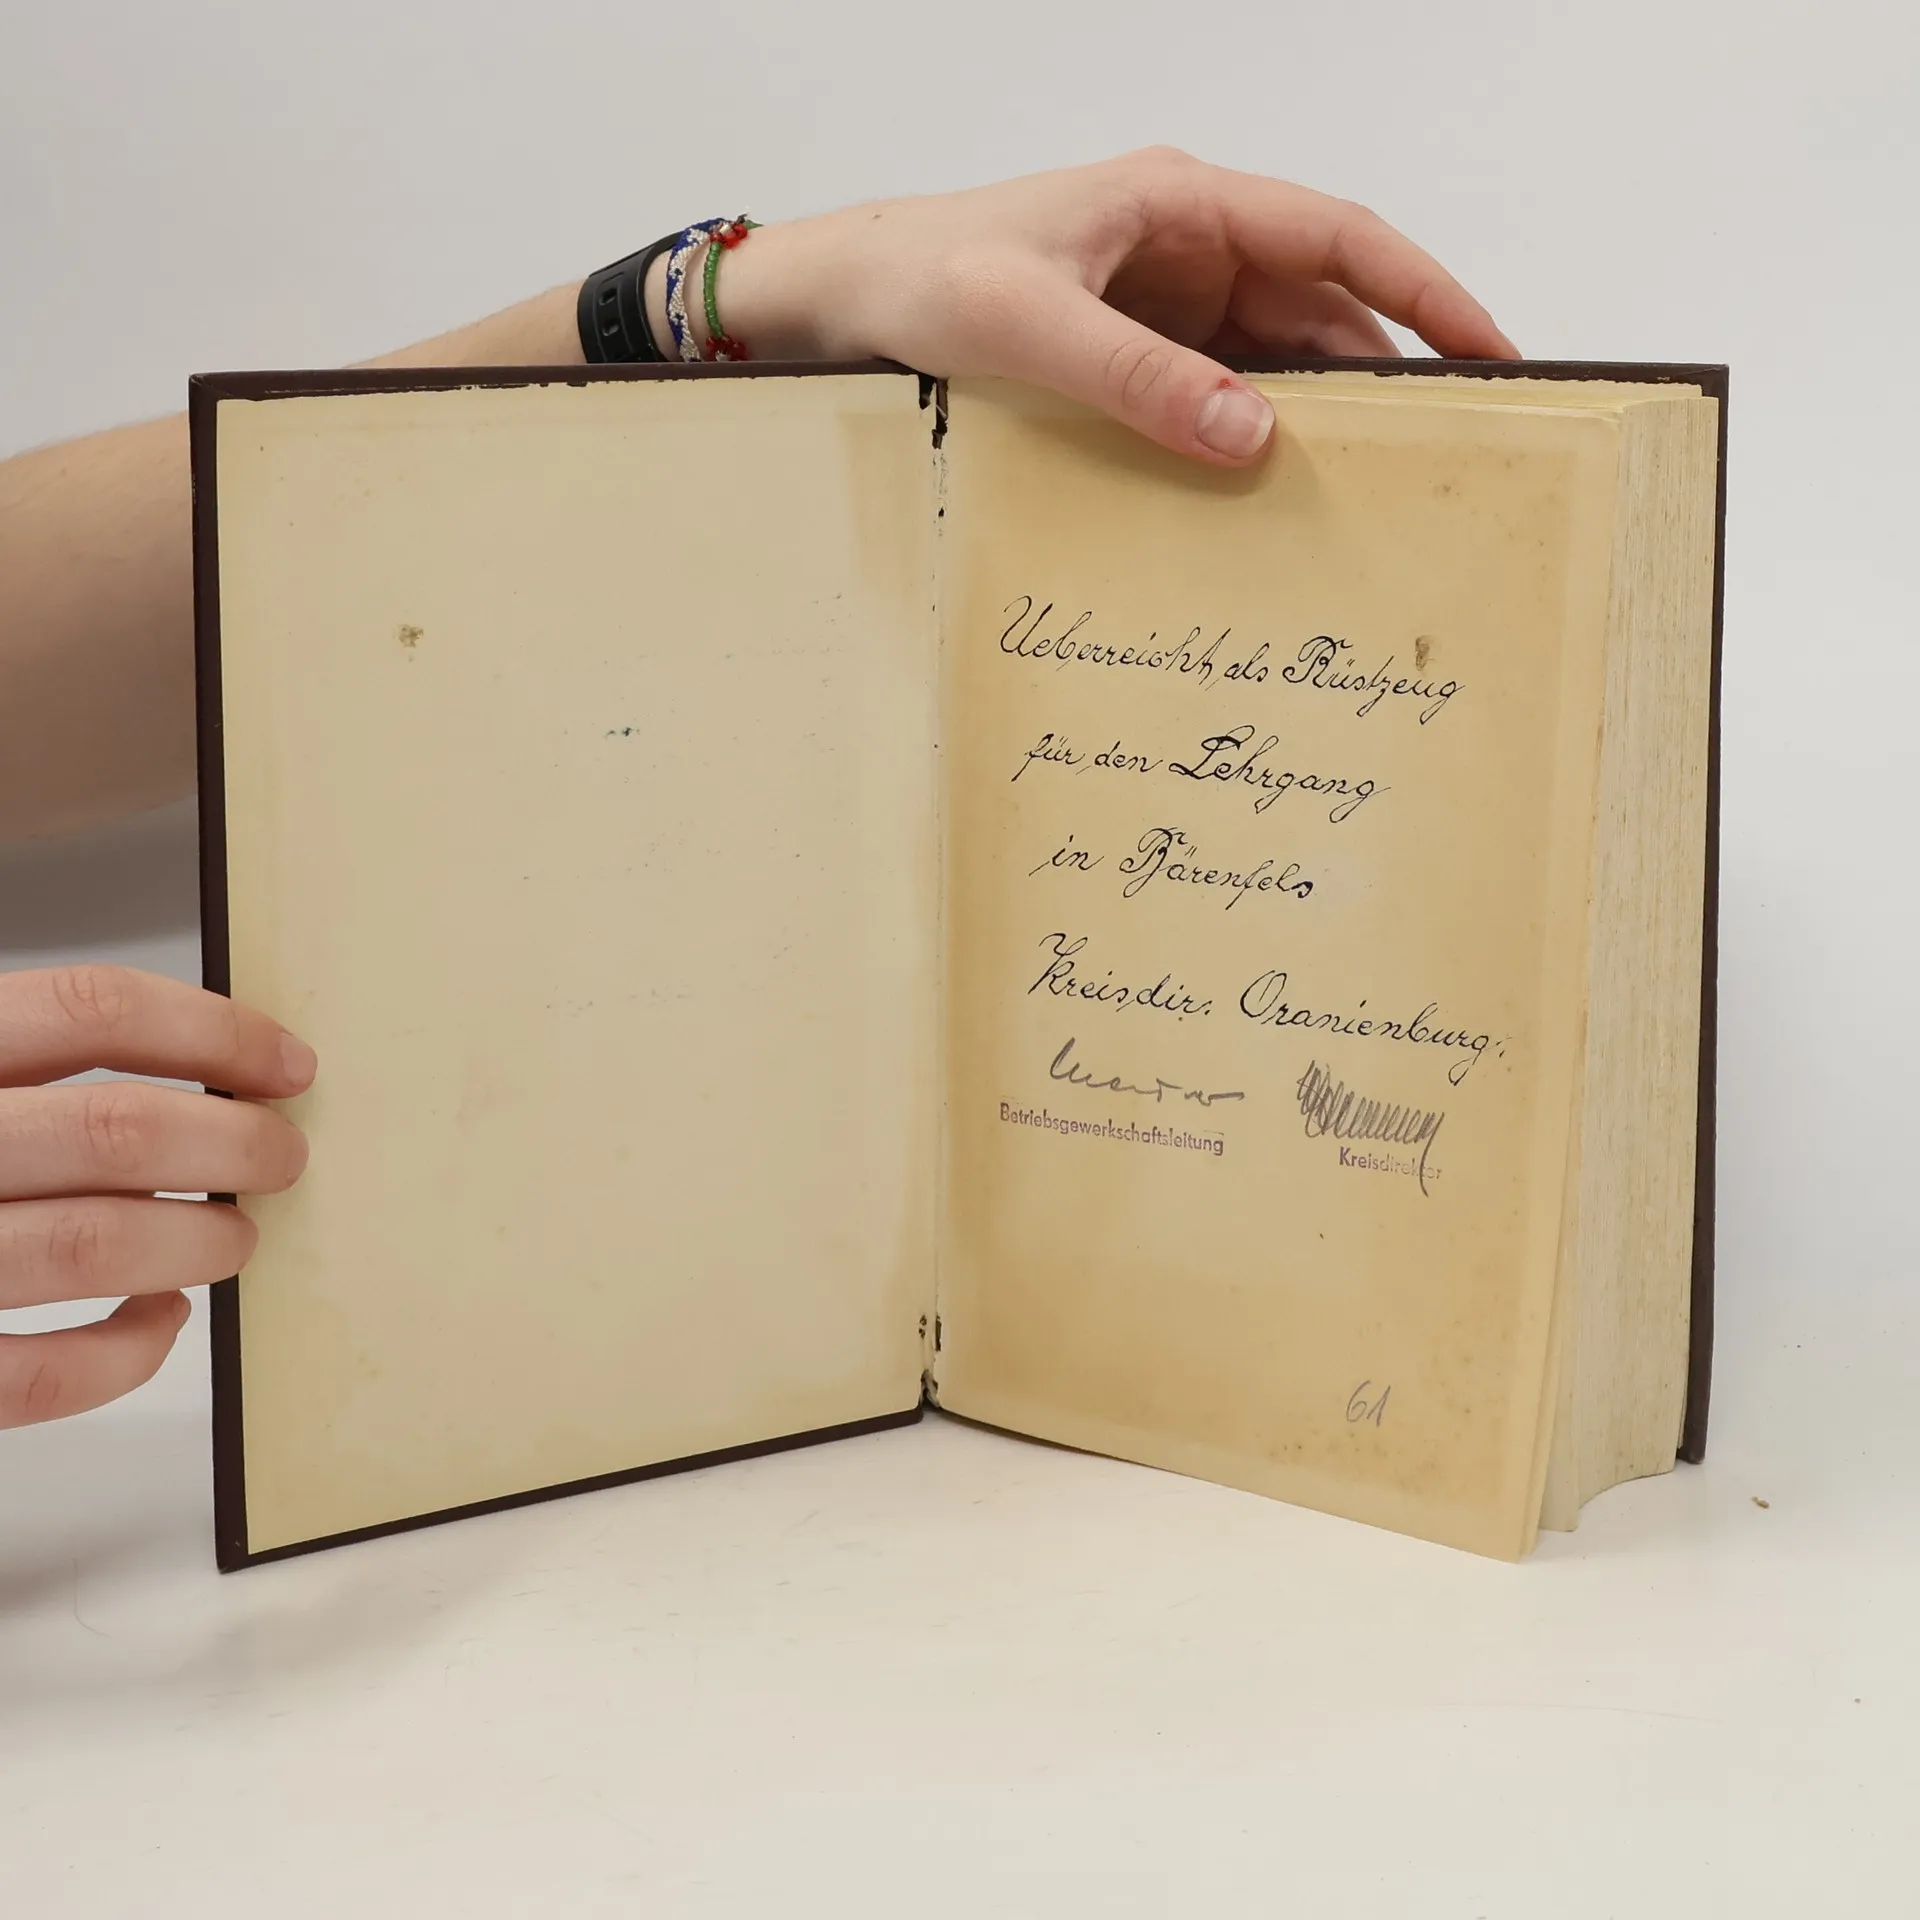 Ueberreicht als Rüstzeug
für den Lehrgang
in Bärenfels
Kreisdir. Oranienburg.
Betriebsgewerkschaftsleitung
Kreisdirektor
61